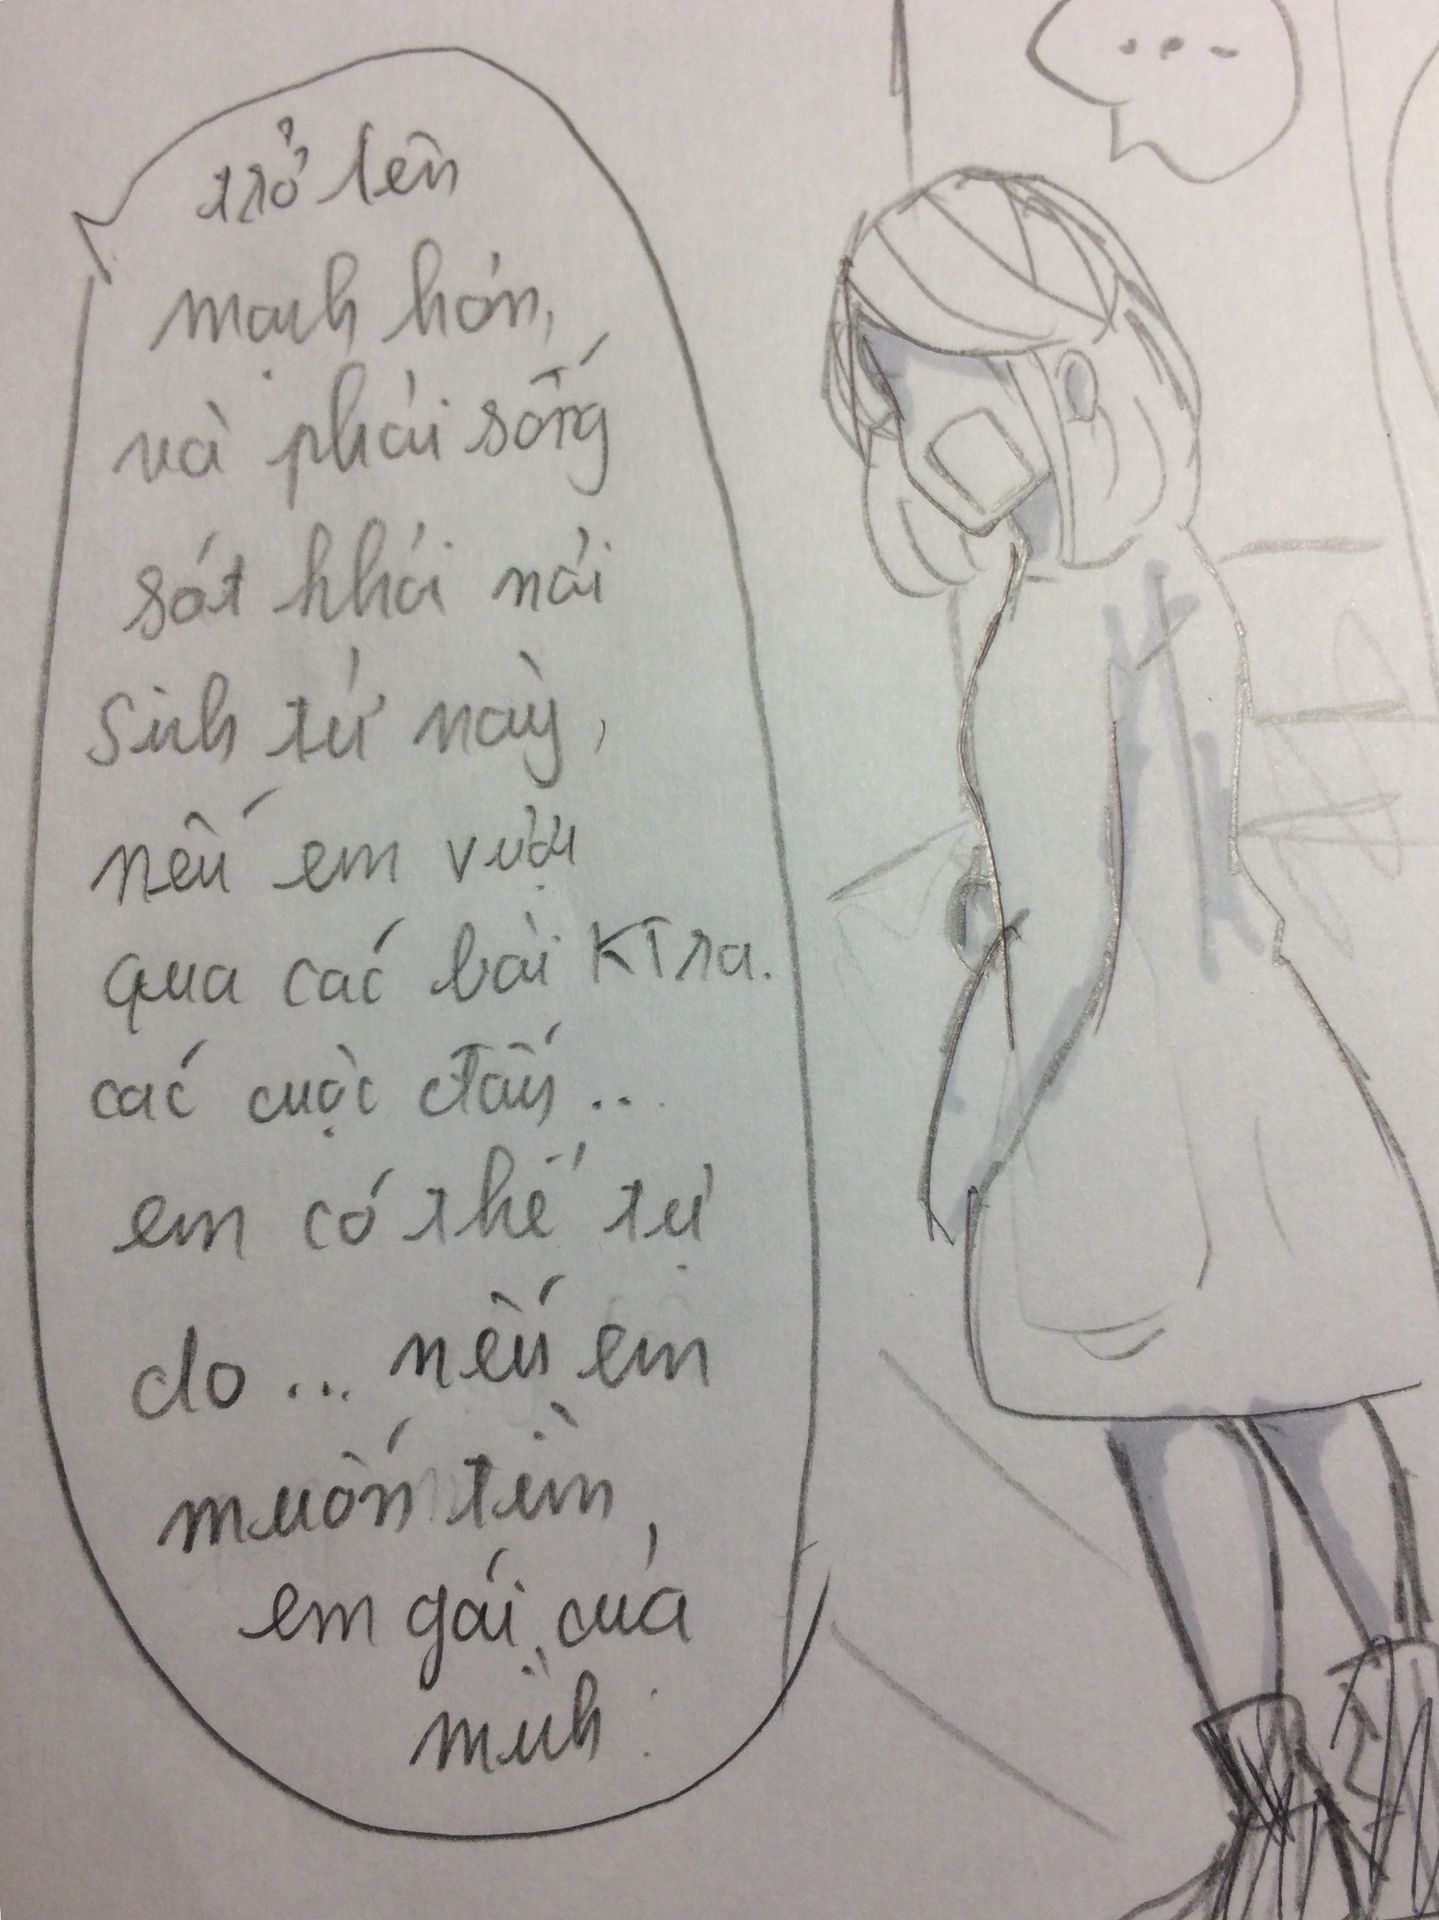 trở lên
mạnh hơn,
và phải sống
sót khỏi nơi
sinh tử này,
nếu em vượt
qua các bài KTra.
các cuộc đấu ..
em có thể tự
do ... nếu em
muốn tìm
em gái của
mình.
...